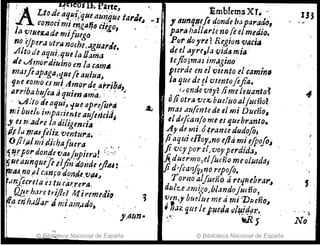 Alto de aquí, que aunque tarde,
conoci mi engaño ciego,
la viueza de mi fuego
no espera otra noche, aguarde.
Alto de aqui, que la llama
de Amor diuino en la cama
mas se apaga, que se aulua,
que como es mi Amor de arriba,
arriba busca à quien ama.
Alto de aqui, que apresura
mi buelo impaciente ausencia,
y es madre la diligencia
que aunque se el fin donde està:
mas no el canço donde va,
tan secreta es tu carrera.
Que hare triste? Mi remedio
es en hallar à mi amado,
y aun-
Emblema XI.
133
y aunque se donde ha parado,
para hallarle no se el medio.
Por do yre? Region vacia
de el ayre, la vida mia
te fio; mas imagino
pierde en el viento el camino
la que de el viento se fia.
donde voy? si me leuanto
ò si otra vez bueluo al sueño?
mas ausente de el mi Dueño,
el descanso me es quebranto.
Ay de mi. ò trance dudoso,
si aqui estoy, no està mi esposo,
si voy por el, voy perdida,
si duermo, el sueño me oluida,
Torno al sueño à requebrar,
dulze amigo, blando sueño,
ven, y buelue me à mi Dueño,
haz que le pueda oluidar.
No
© Biblioteca Nacional de España
© Biblioteca Nacional de España